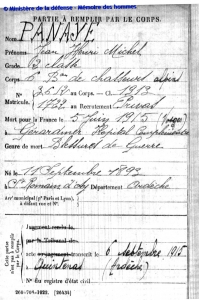 © Ministère de la défense - Mémoire des hommes
PARTIE À REMPLIR PAR LE CORPS.
Nom PANAYE
Prénoms Jean Henri Michel
Grade 2 classe
Corps 6 Bon de chasseurs alpins
N° 2617 au Corps. — Cl. 1913
Matricule. 1722 au Recrutement Privas
Mort pour la France le 5 Juin 1915
à Gérardmer Hopital
Genre de mort Blessures de Guerre
Né le 11 Septembre 1893
à St Romain d'ay Département Ardèche
Arr¹ municipal (pʳ Paris et Lyon),
à défaut rue et N°.
Cette partie
n'est pas à remplir
par le Corps.
Jugement rendu le
par le Tribunal de
acte ou jugement transcrit le 6 Septembre 1915
à Quintenas (Ardèche)
N° du registre d'état civil